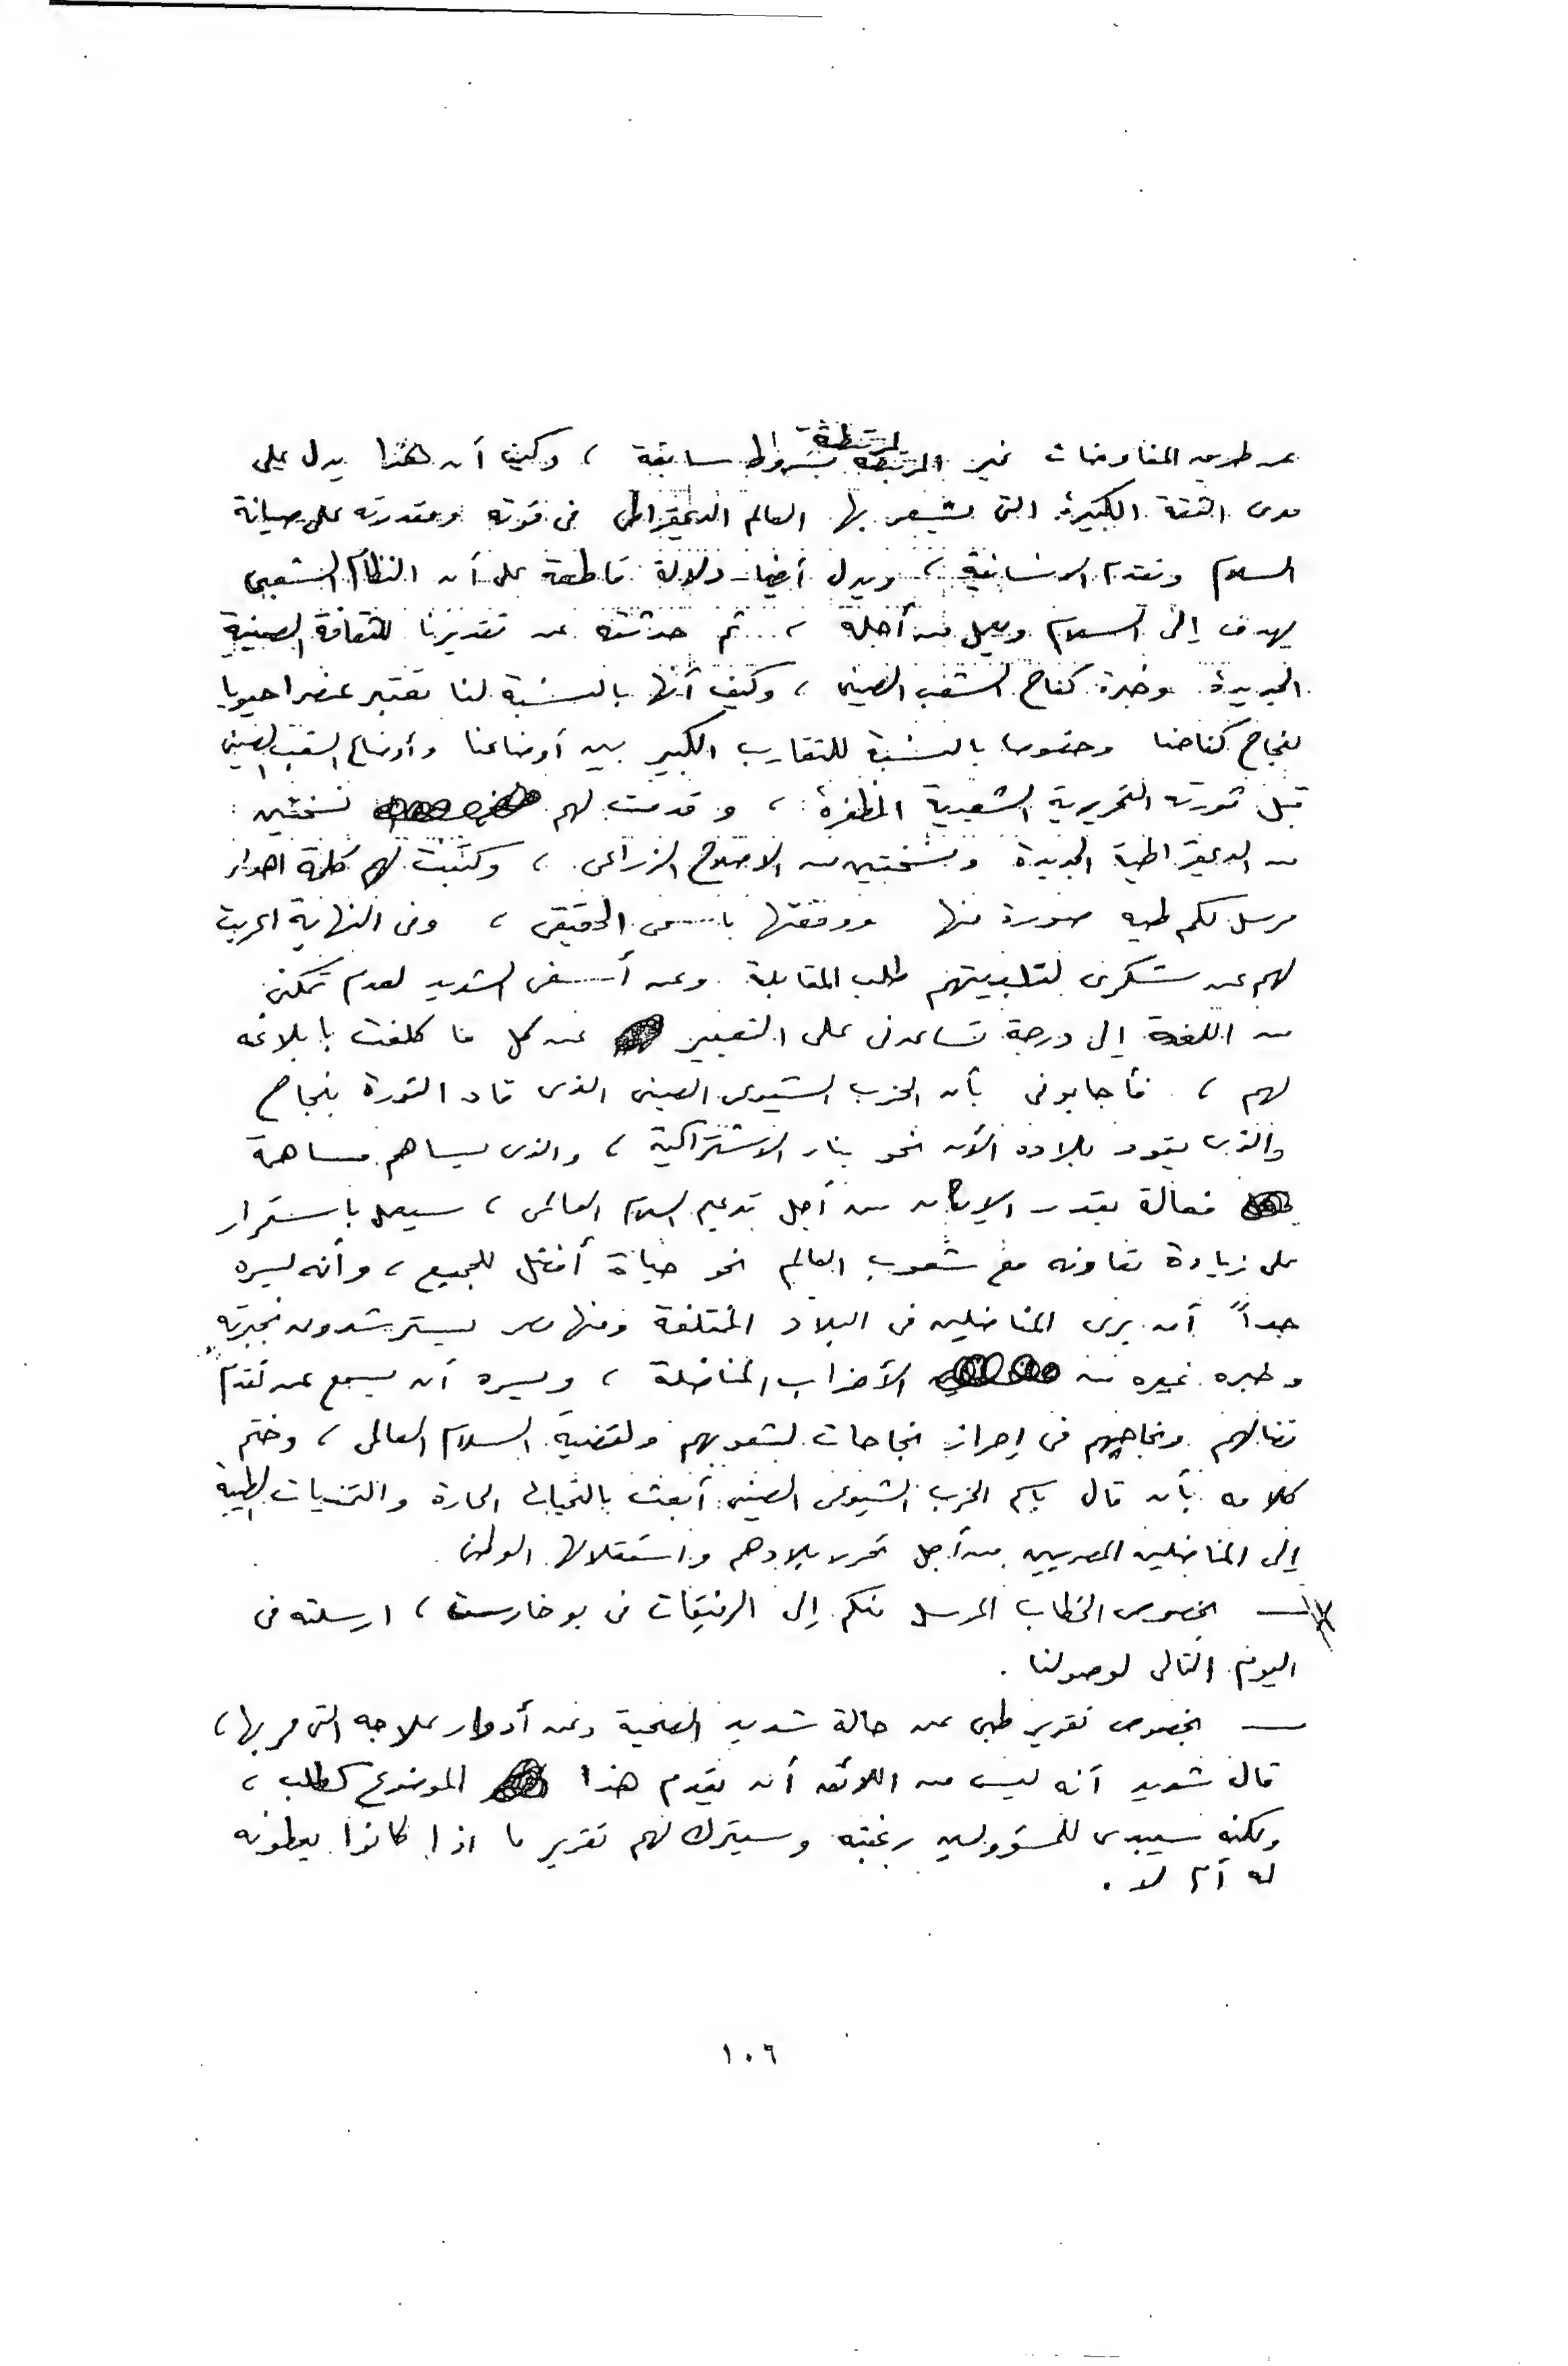 عن طريق المفاوضات غير المرتبطة بشروط سابقة ، وكيف أن هذا يدل على
مدى الثقة الكبيرة التى يشعر بها العالم الديمقراطى فى قوته ومقدرته على صيانة
السلام وتقدم الانسانية ، ويدل أيضا دلالة قاطعة على أن النظام الشعبى
يهدف إلى السلام ويعمل من أجله ، ثم حدثته عن تقديرنا للثقافة الصينية
الجديدة وخبرة كفاح الشعب الصينى ، وكيف أنها بالنسبة لنا تعتبر عنصرا حيويا
لنجاح كفاحنا وخصوصا بالنسبة للتقارب الكبير بين أوضاعنا وأوضاع الشعب الصينى
قبل ثورته التحريرية الشعبية المظفرة ، وقدمت لهم نسختين
من الديمقراطية الجديدة ونسختين من الاصلاح الزراعى ، وكتبت لهم كلمة اهداء
مرسل لكم طيه صورة منها ووقعتها باسمى الحقيقى ، وفى النهاية اعربت
لهم عن شكرى لتلبيتهم طلب المقابلة وعن أسفى الشديد لعدم تمكنى
من اللغة إلى درجة تساعدنى على التعبير عن كل ما كلفت بابلاغه
لهم ، فأجابونى بأن الحزب الشيوعى الصينى الذى قاد الثورة بنجاح
والذى يقود بلاده الآن نحو بناء الاشتراكية ، والذى يساهم مساهمة
فعالة بقدر الإمكان من أجل تدعيم السلام العالمى ، سيعمل باستمرار
على زيادة تعاونه مع شعوب العالم نحو حياة أفضل للجميع ، وأنه ليسره
جداً أن يرى المناضلين فى البلاد المختلفة ومنها مصر يسترشدون بخبرته
وخبره غيره من الأحزاب المناضلة ، ويسره أن يسمع عن تقدم
نضالهم ونجاحهم فى إحراز نجاحات لشعوبهم ولقضية السلام العالمى ، وختم
كلامه بأن قال باسم الحزب الشيوعى الصينى أبعث بالتحيات الحارة والتمنيات الطيبة
إلى المناضلين المصريين من أجل تحرر بلادهم واستقلالها الوطنى
— بخصوص الخطاب المرسل منكم إلى الرفيقات فى بوخارست ، ارسلته فى
اليوم التالى لوصولنا .
— بخصوص تقرير طبى عن حالة شديد الصحية وعن أدوار علاجه التى مر بها ،
قال شديد أنه ليس من اللائق أن يقدم هذا الموضوع كطلب ،
ولكنه سيبدى للمسؤولين رغبته وسيترك لهم تقرير ما اذا كانوا يعطونه
له أم لا .
١٠٦